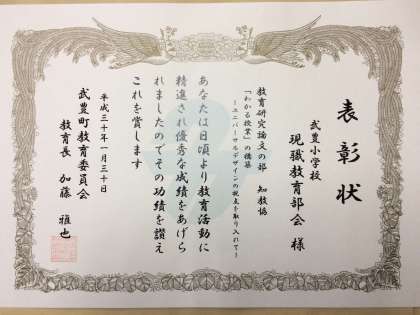 表彰状
武豊小学校
現職教育部会 様
教育研究論文の部 知教協
「わかる授業」の構築
~ユニバーサルデザインの視点を取り入れて~
あなたは日頃より教育活動に
精進され優秀な成績をあげら
れましたのでその功績を讃え
これを賞します
平成三十年一月三十日
武豊町教育委員会
教育長 加藤 雅也